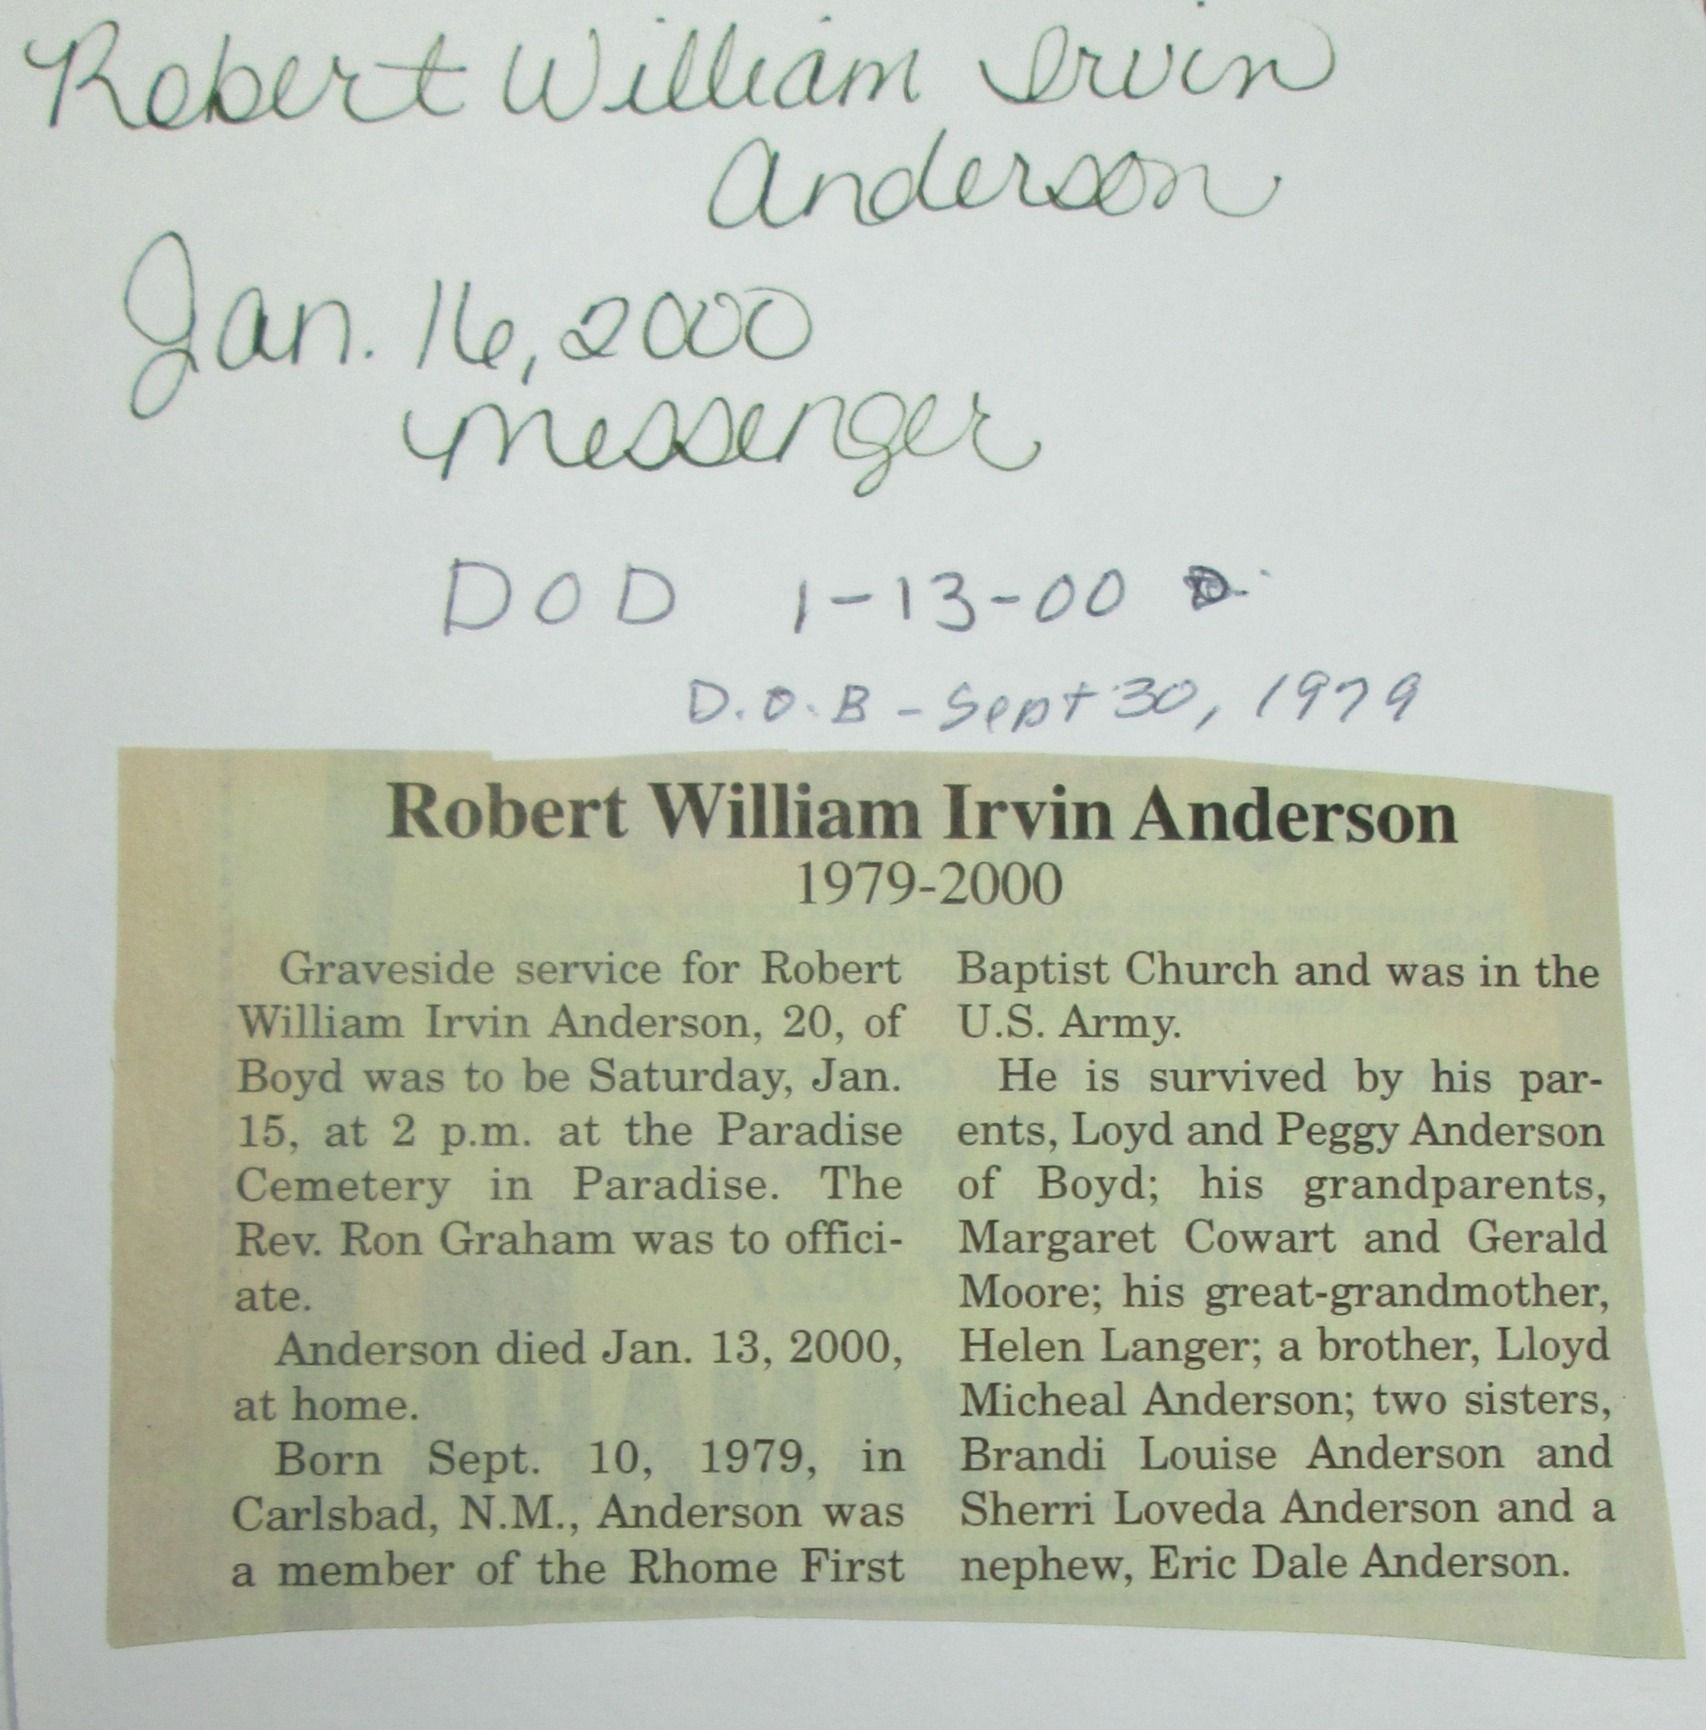 Robert William Irvin
Anderson
Jan. 16, 2000
Messenger
DOD 1-13-00
D.O.B - Sept 30, 1979
Robert William Irvin Anderson
1979-2000
Graveside service for Robert
William Irvin Anderson, 20, of
Boyd was to be Saturday, Jan.
15, at 2 p.m. at the Paradise
Cemetery in Paradise. The
Rev. Ron Graham was to offici-
ate.
Anderson died Jan. 13, 2000,
at home.
Born Sept. 10, 1979, in
Carlsbad, N.M., Anderson was
a member of the Rhome First
Baptist Church and was in the
U.S. Army.
He is survived by his par-
ents, Loyd and Peggy Anderson
of Boyd; his grandparents,
Margaret Cowart and Gerald
Moore; his great-grandmother,
Helen Langer; a brother, Lloyd
Micheal Anderson; two sisters,
Brandi Louise Anderson and
Sherri Loveda Anderson and a
nephew, Eric Dale Anderson.